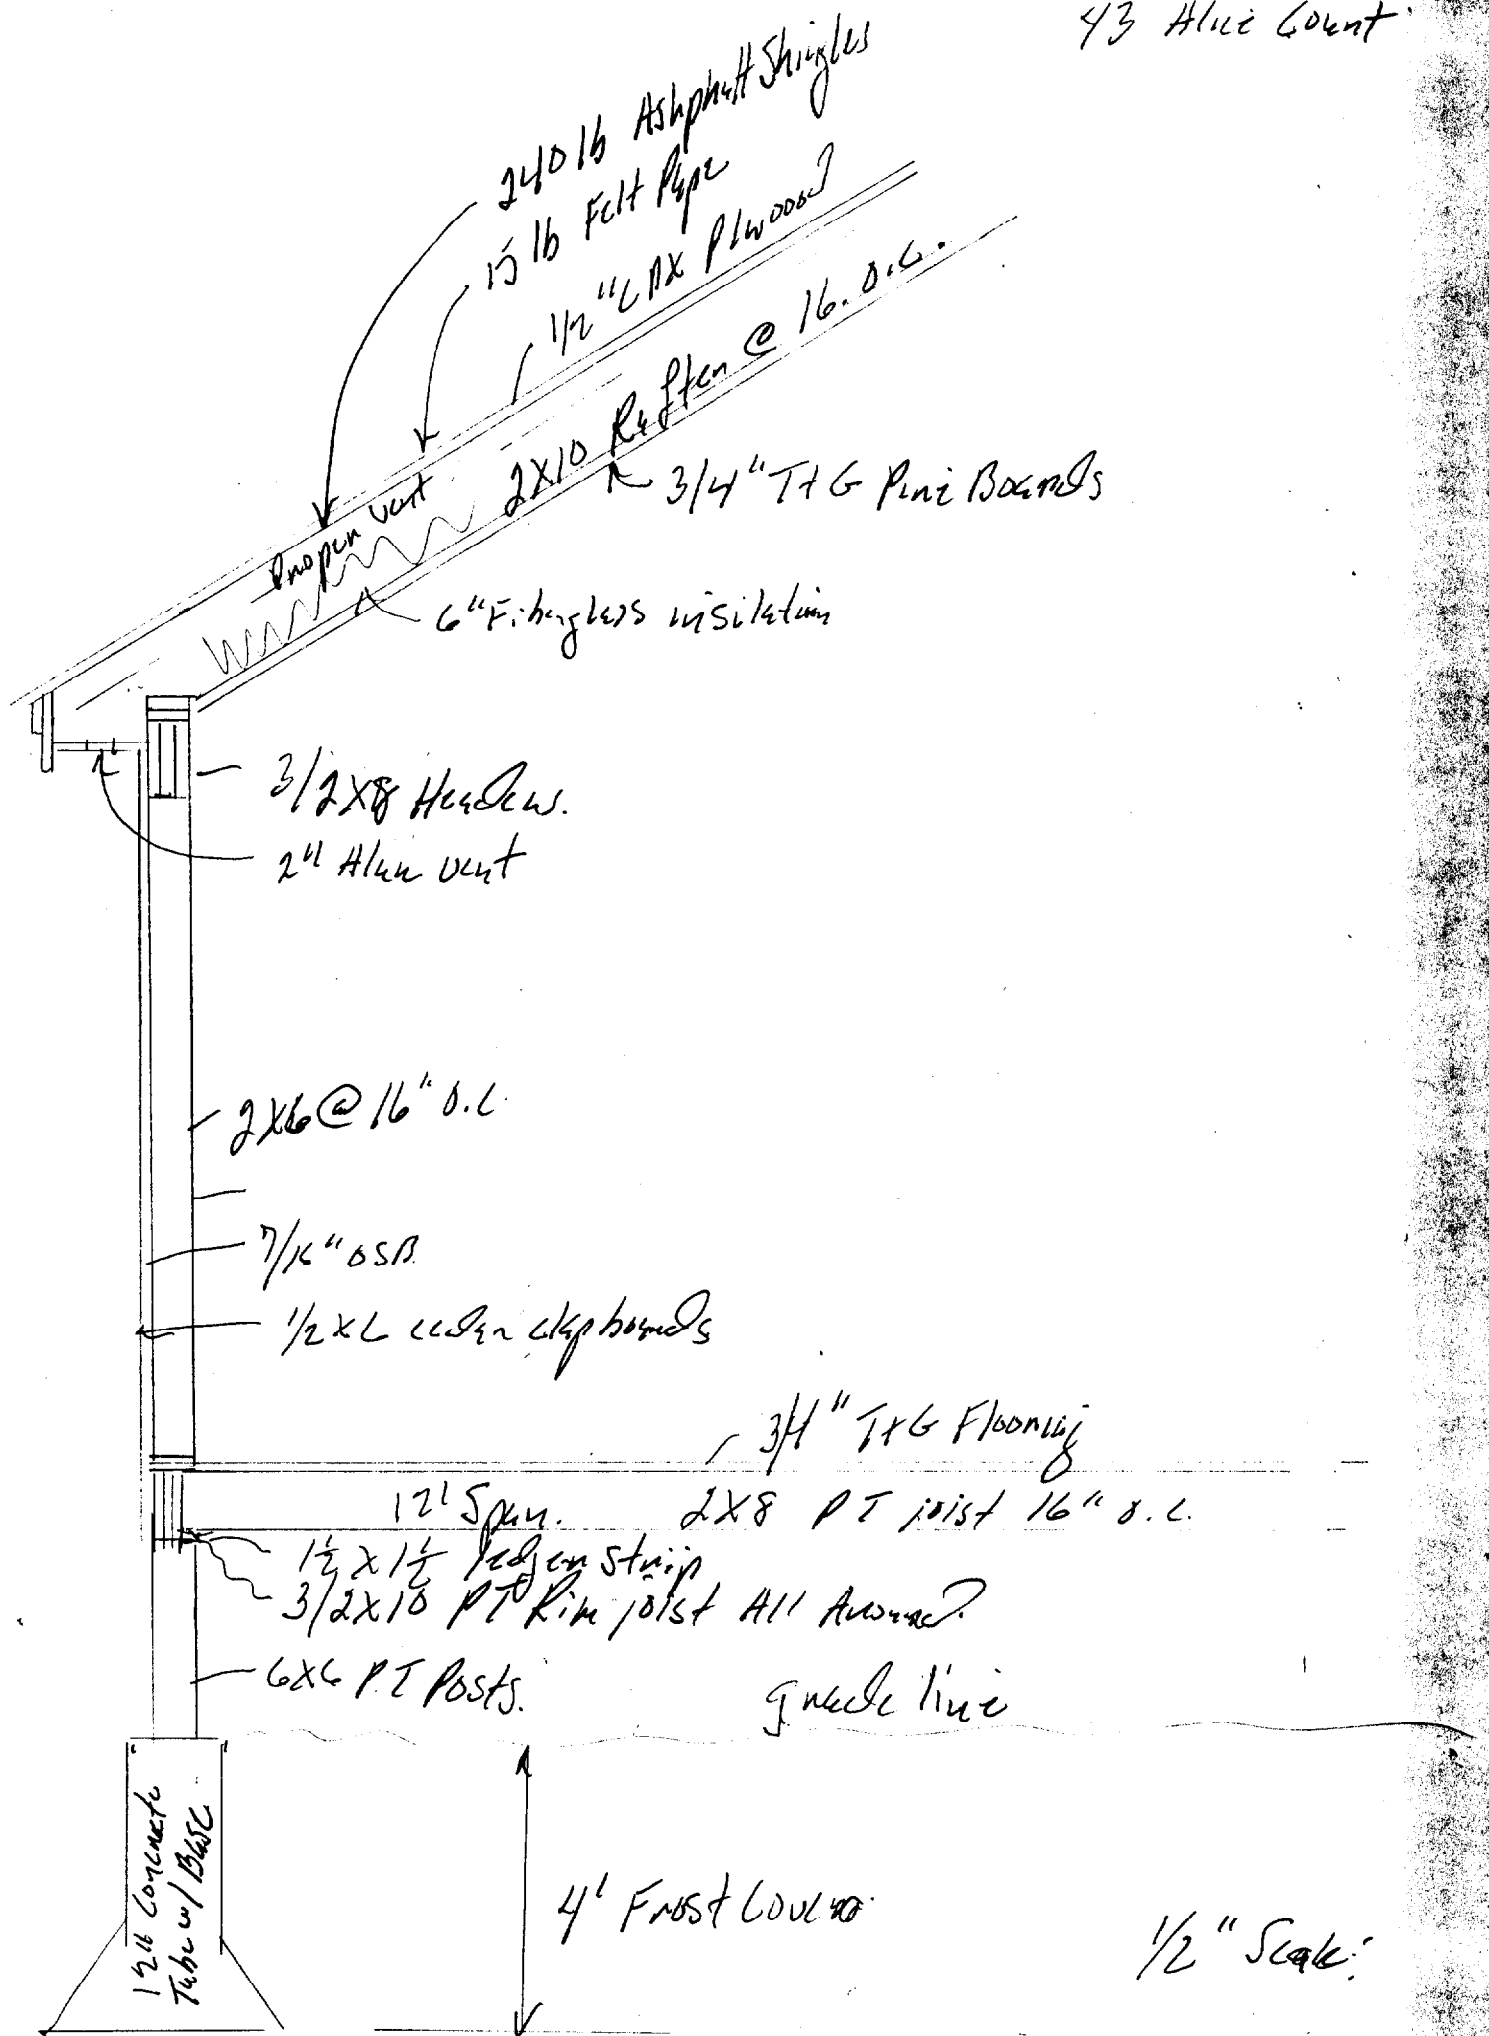 43 Alice Court
240 lb Ashphalt Shingles
15 lb Felt Pape
1/2" CDX Plwood
2X10 Rafter @ 16. o.c.
3/4" T+G Pine Boards
Proper vent
6" Fiberglass insilation
3/2X8 Headers.
2" Alum vent
2X6 @ 16" O.C.
7/16" OSB
1/2 X 6 cedar clapboards
3/4" T+G Flooring
12' Span.
2X8 PT joist 16" o.c.
1 1/2 X 1 1/2 ledger strip
3/2X10 PT Rim joist All Around.
6X6 P.T Posts.
grade line
12" Concrete
Tube w/ Base
4' Frost Cover
1/2" Scale: